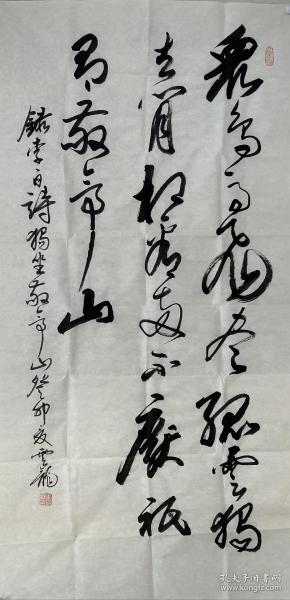 眾鳥高飛盡孤雲獨
去閒相看兩不厭祇
有敬亭山
錄李白詩獨坐敬亭山癸卯夏雲龍
孔夫子旧书网